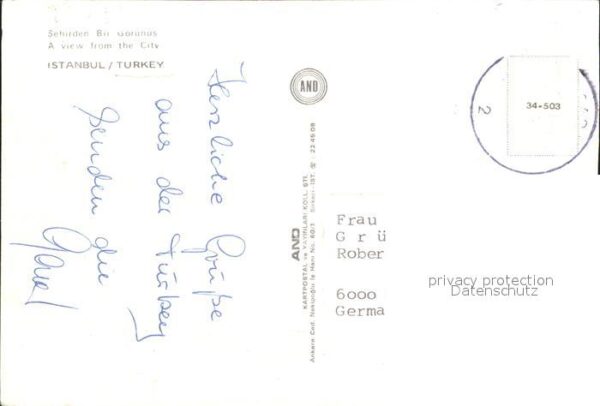 Şehirden Bir Görünüş
A view from the City
ISTANBUL / TURKEY
Herzliche Grüße
aus der Türkey
senden die
AND
AND
KARTPOSTAL ve YAYINLARI KOLL. ŞTİ.
Ankara Cad. Nakipoğlu İş Hanı No. 60/3 Sirkeci-IST. ☏ : 22 45 08
34-503
2
Frau
G r ü
Rober
6000
Germa
privacy protection
Datenschutz